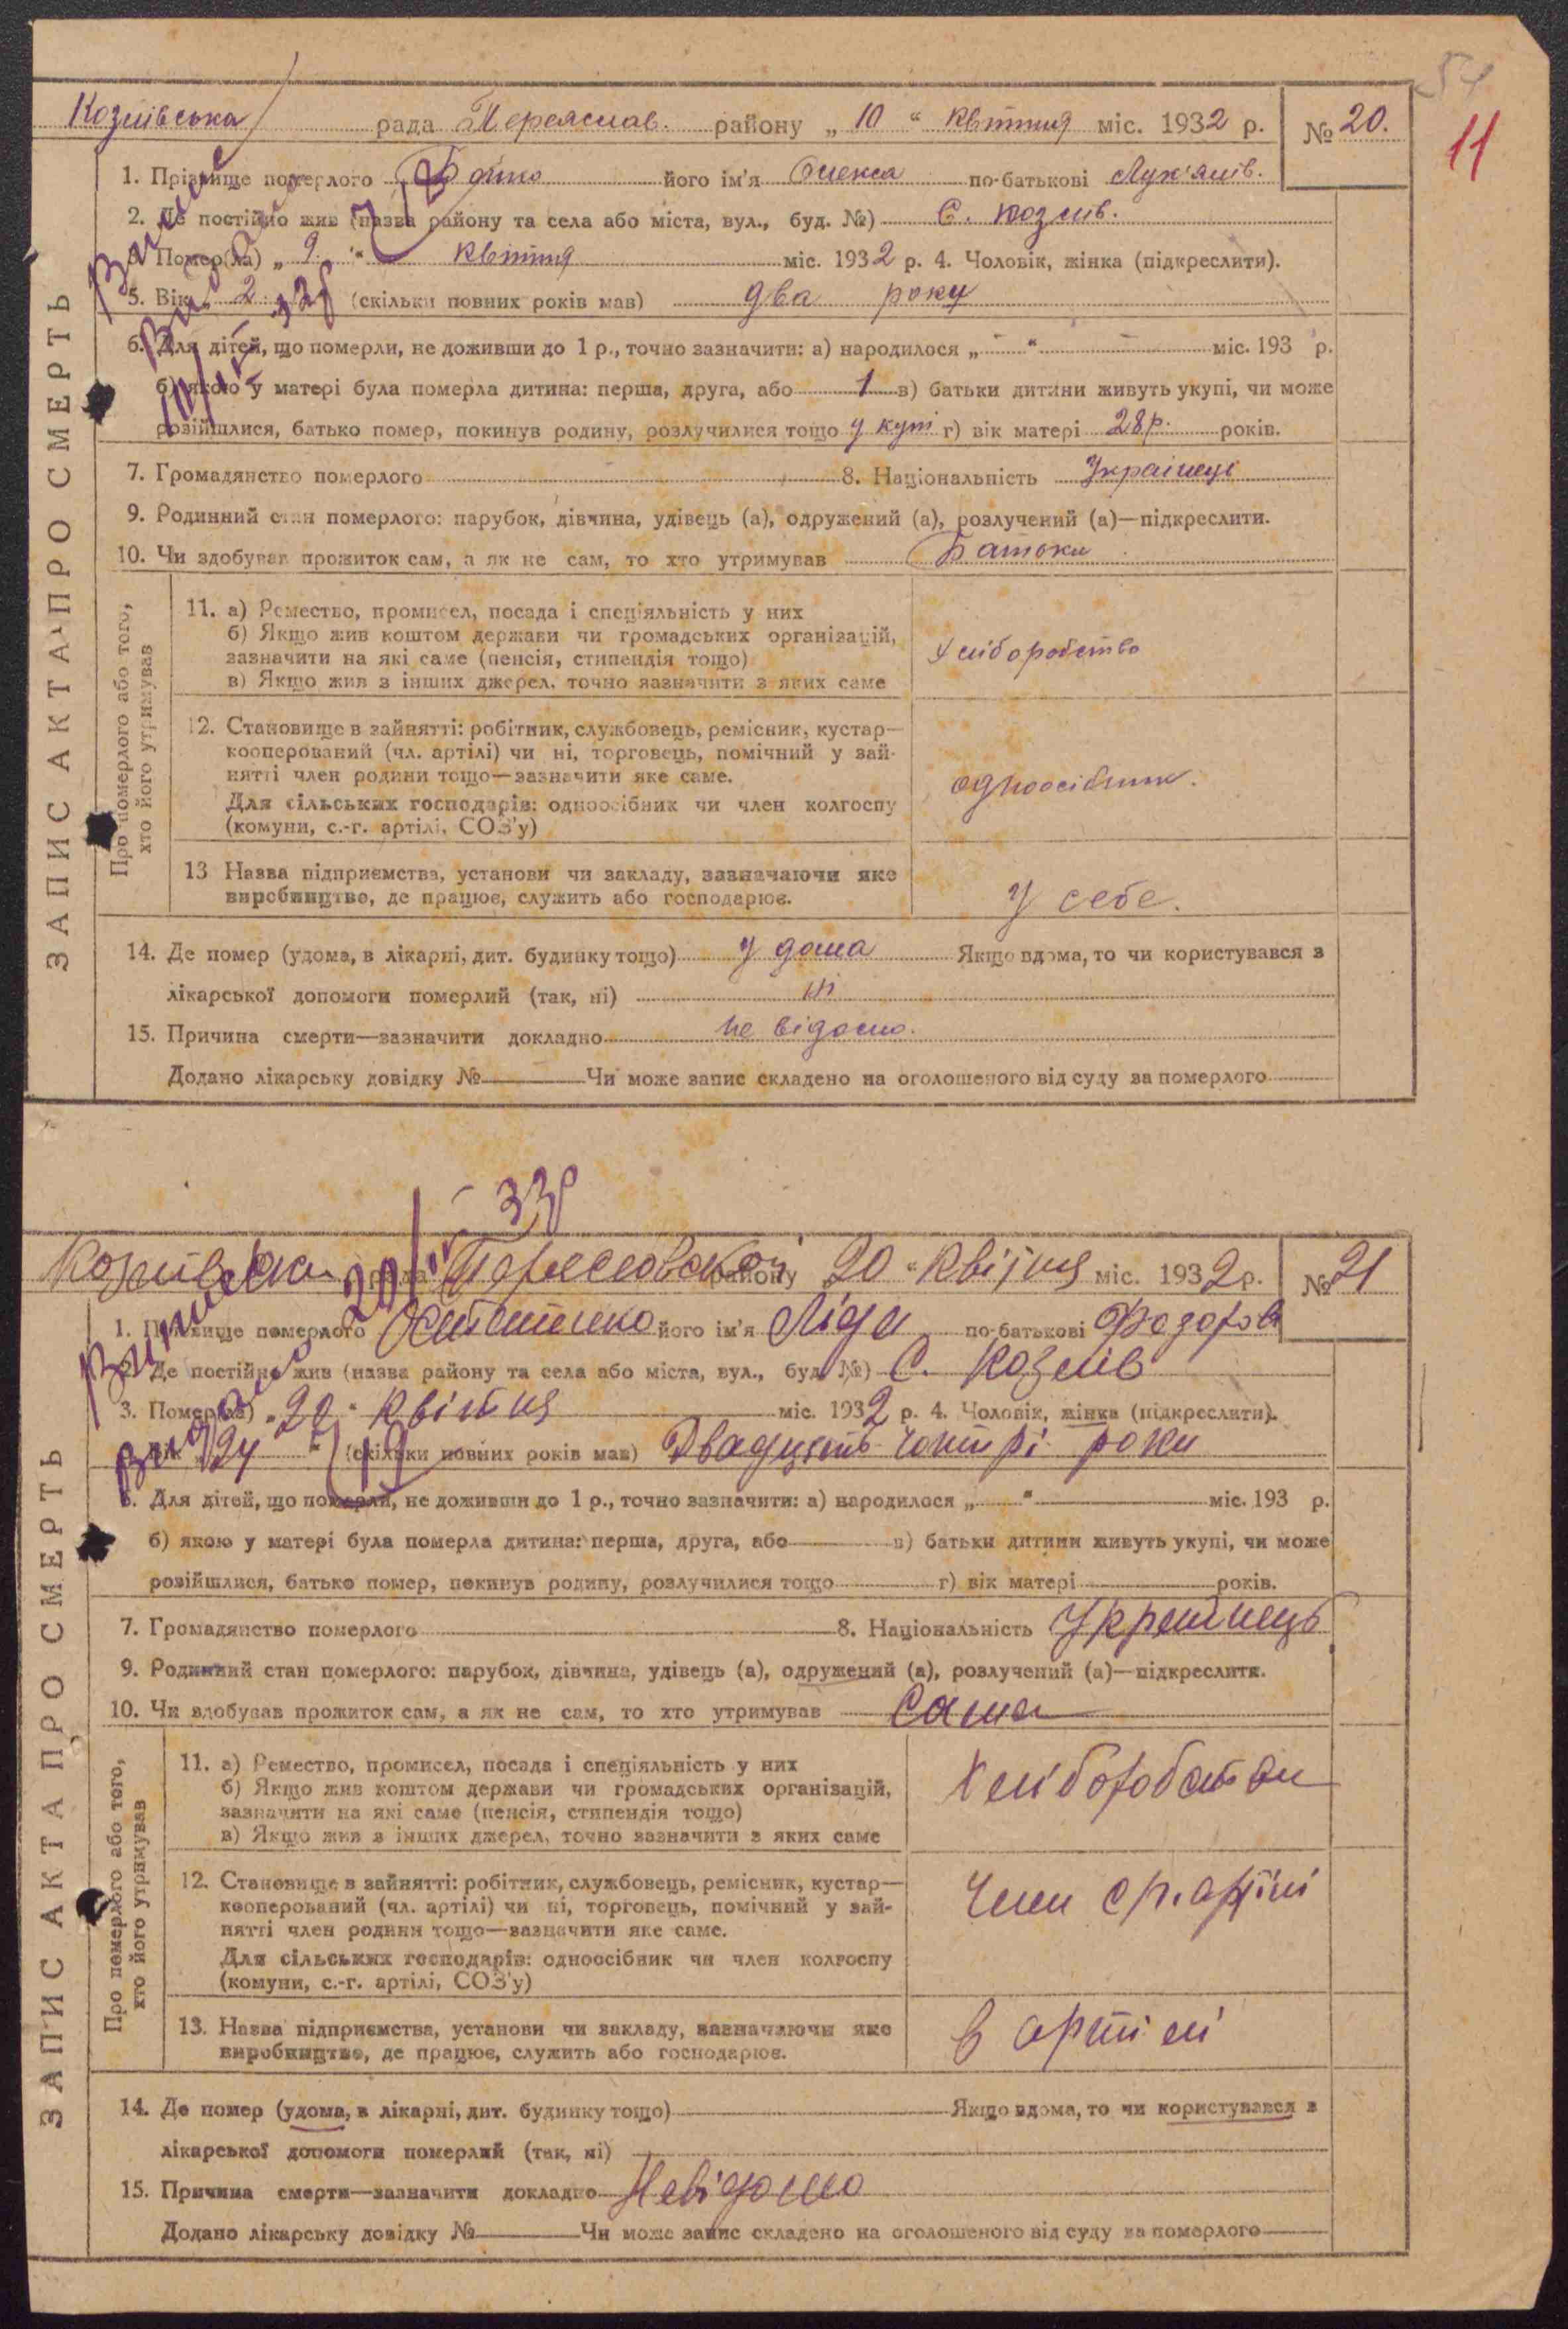 54
11
Козлівська рада Переяслав. району „ 10 “ квітня міс. 1932 р. № 20.
1. Прізвище померлого Бойко його ім'я Олекса по-батькові Лук'янів.
2. Де постійно жив (назва району та села або міста, вул., буд. №) С. Козлів.
3. Помер(ла) „ 9 “ квітня міс. 1932 р. 4. Чоловік, жінка (підкреслити).
5. Вік „ 2 (скільки повних років мав) два роки
6. Для дітей, що померли, не доживши до 1 р., точно зазначити: а) народилося „ “ міс. 193 р.
б) якою у матері була померла дитина: перша, друга, або 1 в) батьки дитини живуть укупі, чи може
розійшлися, батько помер, покинув родину, розлучилися тощо у купі г) вік матері 28 р. років.
7. Громадянство померлого 8. Національність Українець
9. Родинний стан померлого: парубок, дівчина, удівець (а), одружений (а), розлучений (а)—підкреслити.
10. Чи здобував прожиток сам, а як не сам, то хто утримував Батьки
ЗАПИС АКТА ПРО СМЕРТЬ
Про померлого або того, хто його утримував
11. а) Ремество, промисел, посада і спеціяльність у них
б) Якщо жив коштом держави чи громадських організацій,
зазначити на які саме (пенсія, стипендія тощо)
в) Якщо жив з інших джерел, точно зазначити з яких саме
хліборобство
12. Становище в зайнятті: робітник, службовець, ремісник, кустар—
кооперований (чл. артілі) чи ні, торговець, помічний у зай-
нятті член родини тощо—зазначити яке саме.
Для сільських господарів: одноосібник чи член колгоспу
(комуни, с.-г. артілі, СОЗ'у)
одноосібник.
13 Назва підприємства, установи чи закладу, зазначаючи яке
виробництво, де працює, служить або господарює.
У себе.
14. Де помер (удома, в лікарні, дит. будинку тощо) у дома Якщо вдома, то чи користувався з
лікарської допомоги померлий (так, ні) ні
15. Причина смерти—зазначити докладно не відомо.
Додано лікарську довідку № Чи може запис складено на оголошеного від суду за померлого
33р
Козлівська рада Переяславської району „ 20 “ квітня міс. 1932 р. № 21
1. Прізвище померлого його ім'я Ліда по-батькові Федорова
2. Де постійно жив (назва району та села або міста, вул., буд. №) С. Козлів
3. Помер(ла) „ 20 “ квітня міс. 1932 р. 4. Чоловік, жінка (підкреслити).
Вік „ 24 “ (скільки повних років мав) Двадцять чотирі роки
6. Для дітей, що померли, не доживши до 1 р., точно зазначити: а) народилося „ “ міс. 193 р.
б) якою у матері була померла дитина: перша, друга, або в) батьки дитини живуть укупі, чи може
розійшлися, батько помер, покинув родину, розлучилися тощо г) вік матері років.
7. Громадянство померлого 8. Національність Українець
9. Родинний стан померлого: парубок, дівчина, удівець (а), одружений (а), розлучений (а)—підкреслити.
10. Чи здобував прожиток сам, а як не сам, то хто утримував Сама
ЗАПИС АКТА ПРО СМЕРТЬ
Про померлого або того, хто його утримував
11. а) Ремество, промисел, посада і спеціяльність у них
б) Якщо жив коштом держави чи громадських організацій,
зазначити на які саме (пенсія, стипендія тощо)
в) Якщо жив з інших джерел, точно зазначити з яких саме
12. Становище в зайнятті: робітник, службовець, ремісник, кустар—
кооперований (чл. артілі) чи ні, торговець, помічний у зай-
нятті член родини тощо—зазначити яке саме.
Для сільських господарів: одноосібник чи член колгоспу
(комуни, с.-г. артілі, СОЗ'у)
Член с г. артілі
13. Назва підприємства, установи чи закладу, зазначаючи яке
виробництво, де працює, служить або господарює.
в артілі
14. Де помер (удома, в лікарні, дит. будинку тощо) Якщо вдома, то чи користувався з
лікарської допомоги померлий (так, ні)
15. Причина смерти—зазначити докладно Невідомо
Додано лікарську довідку № Чи може запис складено на оголошеного від суду за померлого